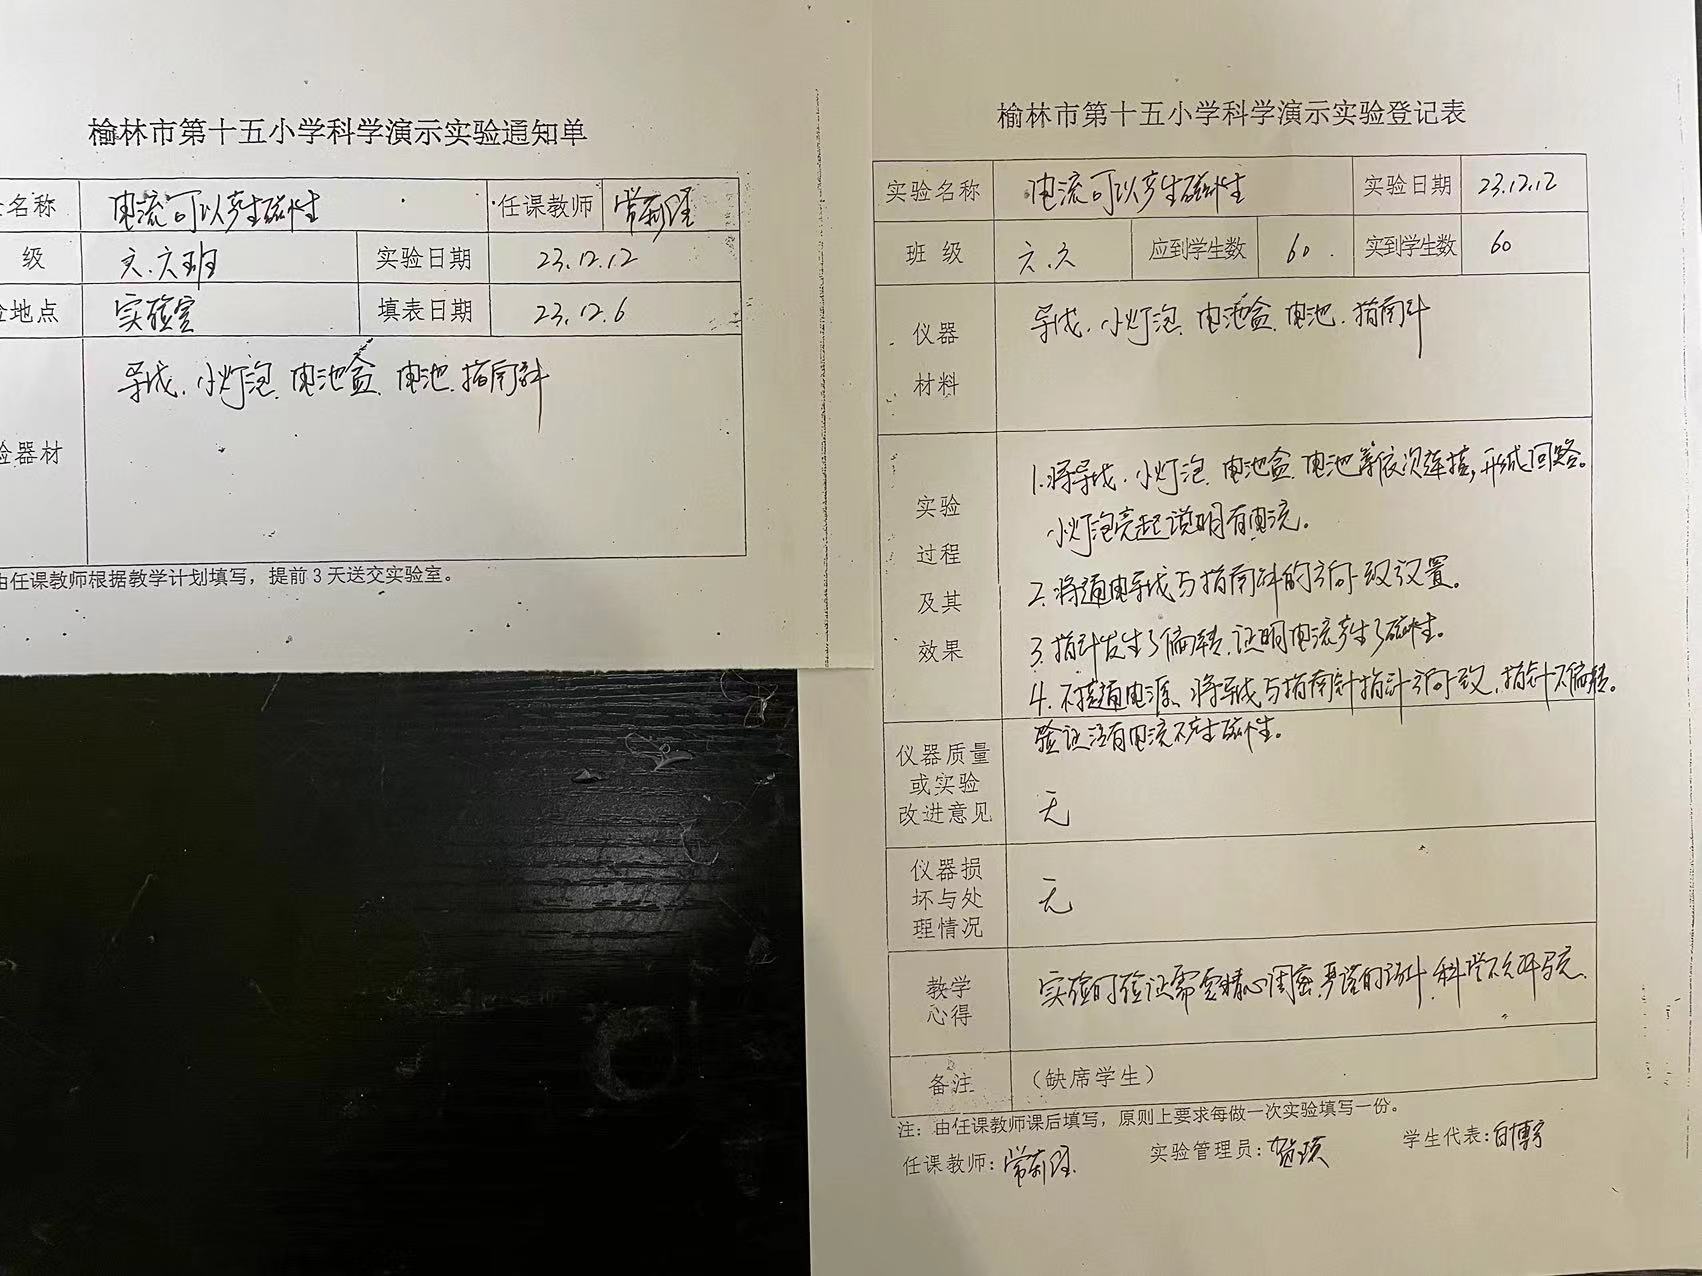 榆林市第十五小学科学演示实验通知单
名称 电流可以产生磁性 任课教师 常莉瑾
级 六.六班 实验日期 23.12.12
地点 实验室 填表日期 23.12.6
验器材 导线、小灯泡、电池盒、电池、指南针
由任课教师根据教学计划填写，提前3天送交实验室。
榆林市第十五小学科学演示实验登记表
实验名称 电流可以产生磁性 实验日期 23.12.12
班 级 六.六 应到学生数 60 实到学生数 60
仪器材料 导线、小灯泡、电池盒、电池、指南针
实验过程及其效果
1.将导线、小灯泡、电池盒、电池等依次连接，形成回路。
小灯泡亮起说明有电流。
2.将通电导线与指南针的方向一致放置。
3.指针发生了偏转，证明电流产生了磁性。
4.不接通电源、将导线与指南针指针方向一致，指针不偏转。
验证没有电流不产生磁性。
仪器质量或实验改进意见 无
仪器损坏与处理情况 无
教学心得 实验的验证需要精心周密、严谨的设计，科学不允许马虎
备注 （缺席学生）
注：由任课教师课后填写，原则上要求每做一次实验填写一份。
任课教师：常莉瑾 实验管理员：贺 学生代表：白博